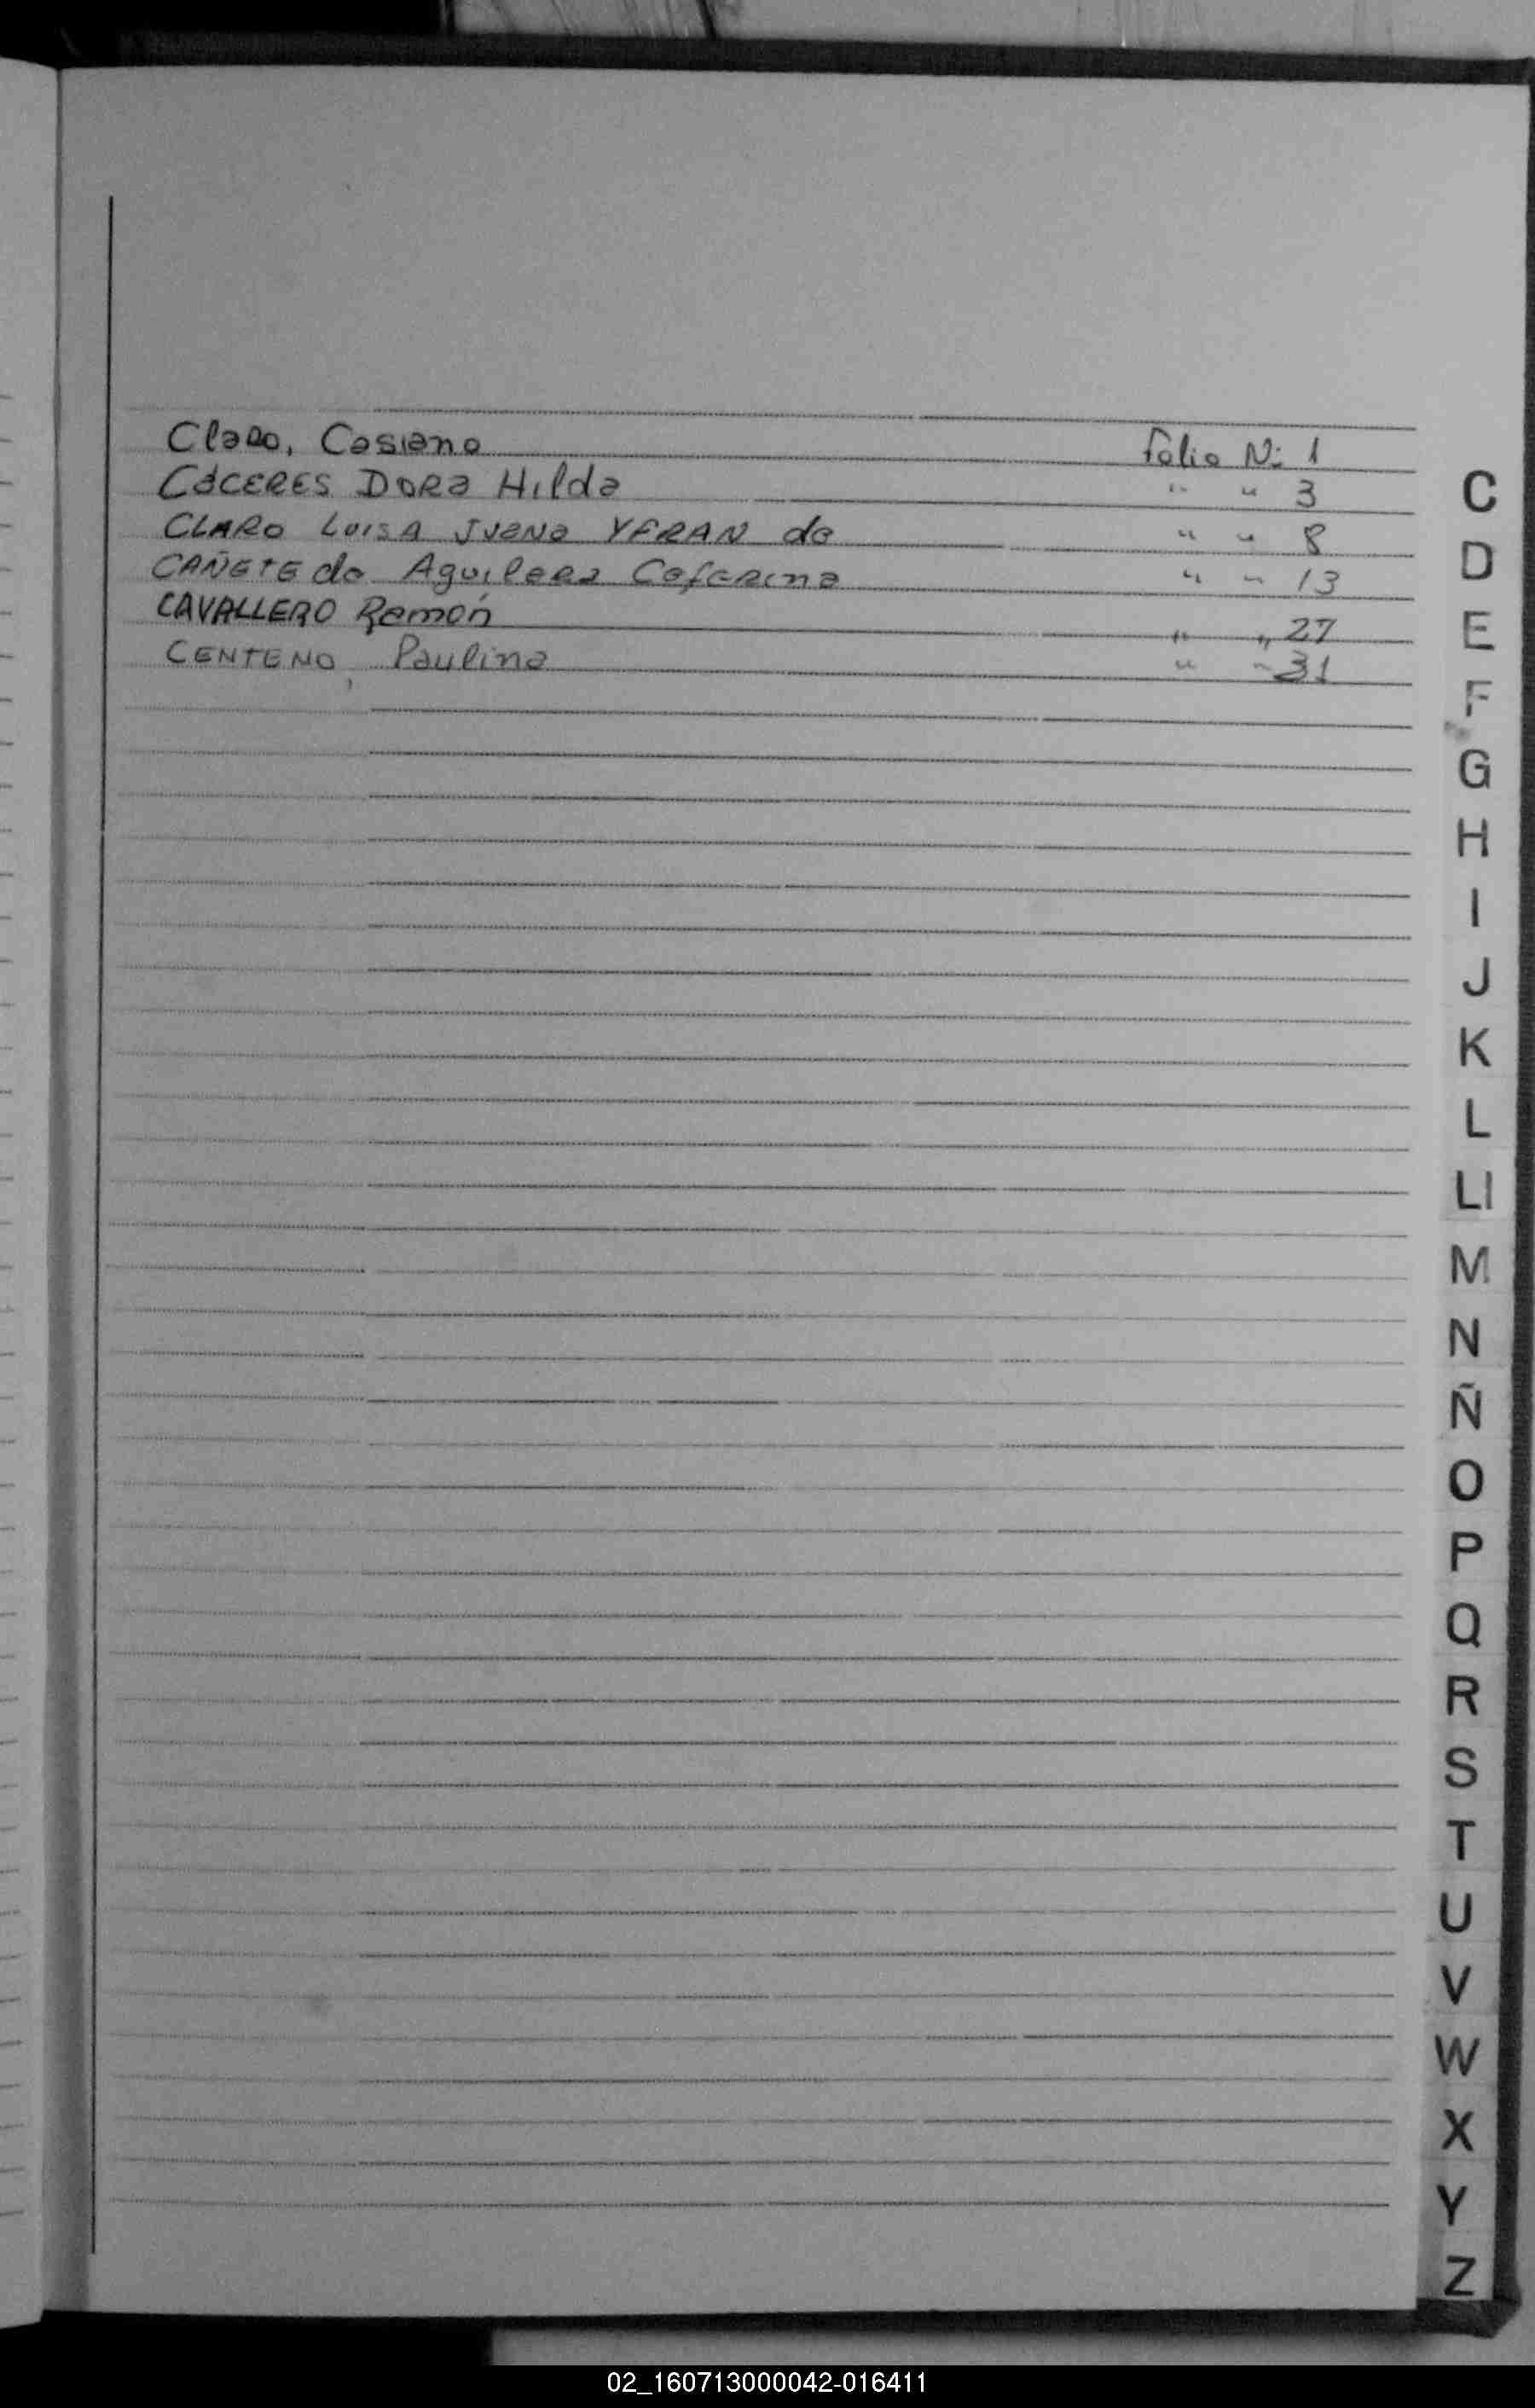 Claro, Casiano Folio N: 1
CáCERES DORa Hilda " " 3
CLARO LuisA JuaNa YFRAN de " " 8
CAÑETE de Aguilera Ceferina " " 13
CAVALLERO Ramón " " 27
CENTENO, Paulina " " 31
C
D
E
F
G
H
I
J
K
L
Ll
M
N
Ñ
O
P
Q
R
S
T
U
V
W
X
Y
Z
02_160713000042-016411